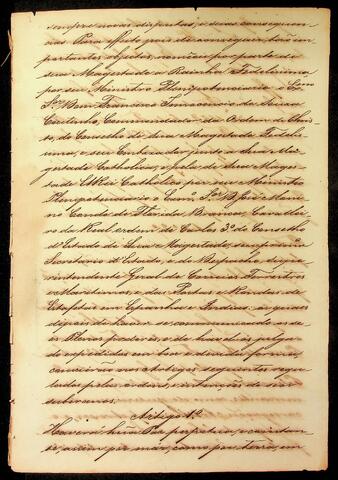 sempre novas disputas, e suas consequen-
cias. Para effeito pois de conseguir tão im-
portantes objectos, nomeou por parte de
Sua Magestade a Rainha Fidelissima
por seu Ministro Plenipotenciario o Exmo
Snr. Dom Francisco Innocencio de Souza
Coutinho, Commendador da Ordem de Chris-
to, do Conselho de Sua Magestade Fidelis-
sima, e seu Embaixador junto a Sua Ma-
gestade Catholica, e pela de Sua Mages-
tade El Rei Catholico por seu Ministro
Plenipotenciario o Exmo. Snr. D. José Moni-
no Conde de Florida Branca, Cavallei-
ro da Real ordem de Carlos 3º do Conselho
d'Estado de Sua Magestade, seu primeiro
Secretario d'Estado, e do Despacho, e Supe-
rintendente Geral de Correios Terrestres
e Maritimos, e das Postas e Rendas de
Estafetas em Espanha e Indias; os quaes
depois de haver-se communicado os se-
us Plenos poderes, e de have-los julga-
do expedidos em boa e devida forma,
convieram nos Artigos seguintes regu-
lados pelas ordens, e intenção de seus
soberanos.
Artigo 1º.
Haverá huma Paz perpetua, e constan-
te, assim por mar, como por terra, em